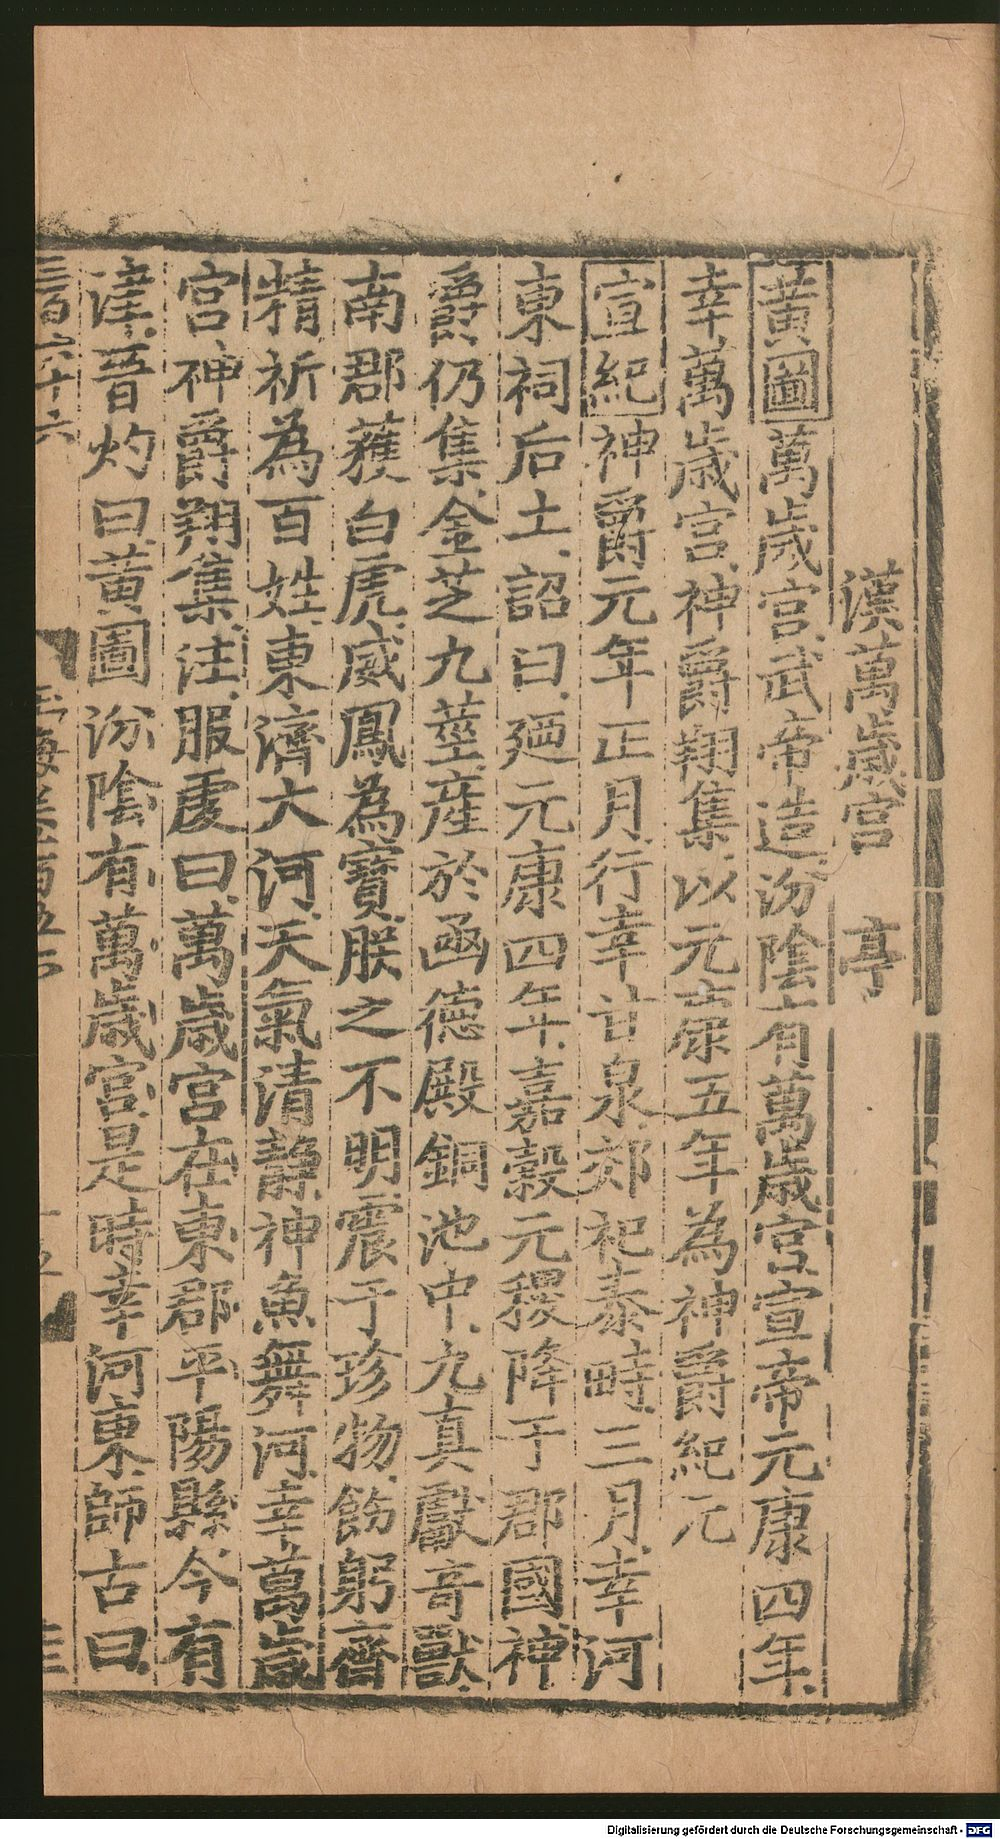 漢萬歲宮　亭
黃圖萬歲宮武帝造汾陰有萬歲宮宣帝元康四年
幸萬歲宮神爵翔集以元康五年為神爵紀元
宣紀神爵元年正月行幸甘泉郊祀泰畤三月幸河
東祠后土詔曰廼元康四年嘉穀元稷降于郡國神
爵仍集金芝九莖產於函德殿銅池中九真獻奇獸
南郡蒦白虎威鳳為寶朕之不明震于珍物飭躬齋
精祈為百姓東濟大河天氣清静神魚舞河幸萬歲
宮神爵翔集注服虔曰萬歲宮在東郡平陽縣今有
津晉灼曰黃圖汾陰有萬歲宮是時幸河東師古曰
三百六十六
Digitalisierung gefördert durch die Deutsche Forschungsgemeinschaft - DFG